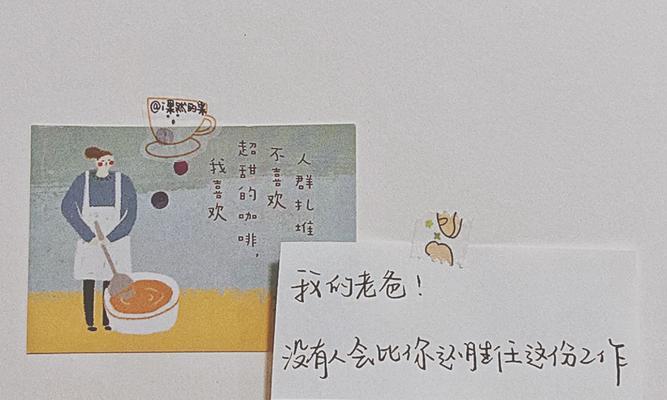 @i果然的果
人群扎堆
不喜欢
超甜的咖啡，
我喜欢
我的老爸！
没有人会比你还胜任这份工作